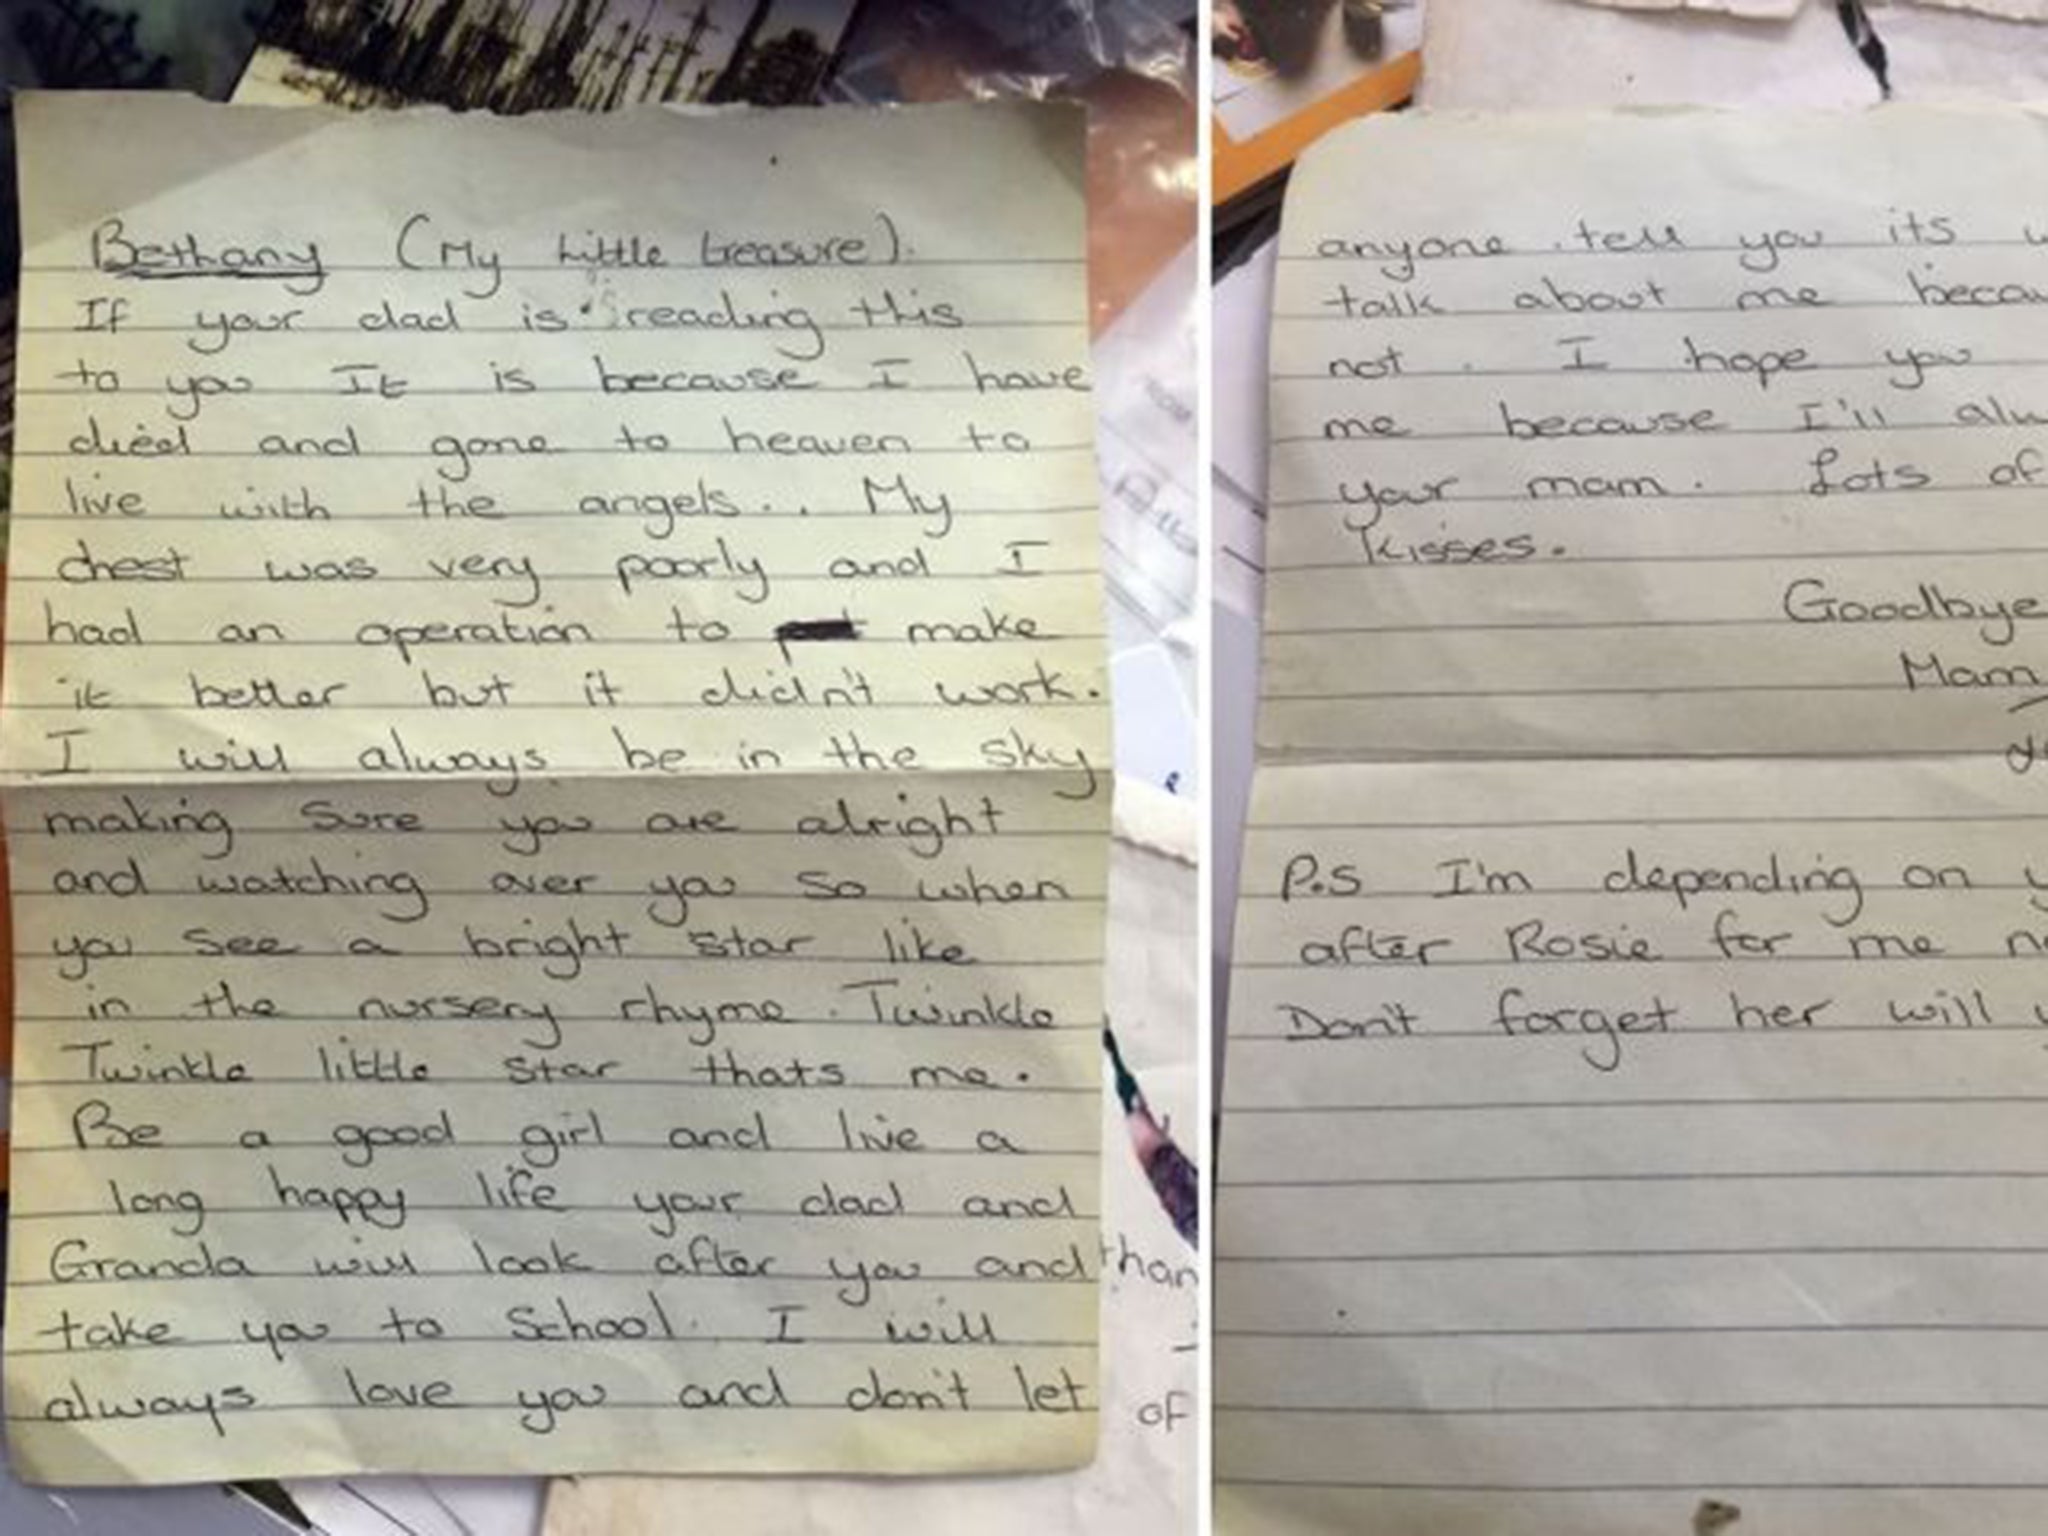 Bethany (My little treasure).
If your dad is reading this
to you It is because I have
died and gone to heaven to
live with the angels.. My
chest was very poorly and I
had an operation to make
it better but it didn't work.
I will always be in the sky
making sure you are alright
and watching over you so when
you see a bright star like
in the nursery rhyme. Twinkle
Twinkle little star thats me.
Be a good girl and live a
long happy life your dad and
Granda will look after you and
take you to School. I will
always love you and don't let
than
of
anyone tell you its
talk about me
not. I hope you
me because I'll
your mam. Lots of
kisses.
Goodbye
Mam
P.S I'm depending on
after Rosie for me
Don't forget her will